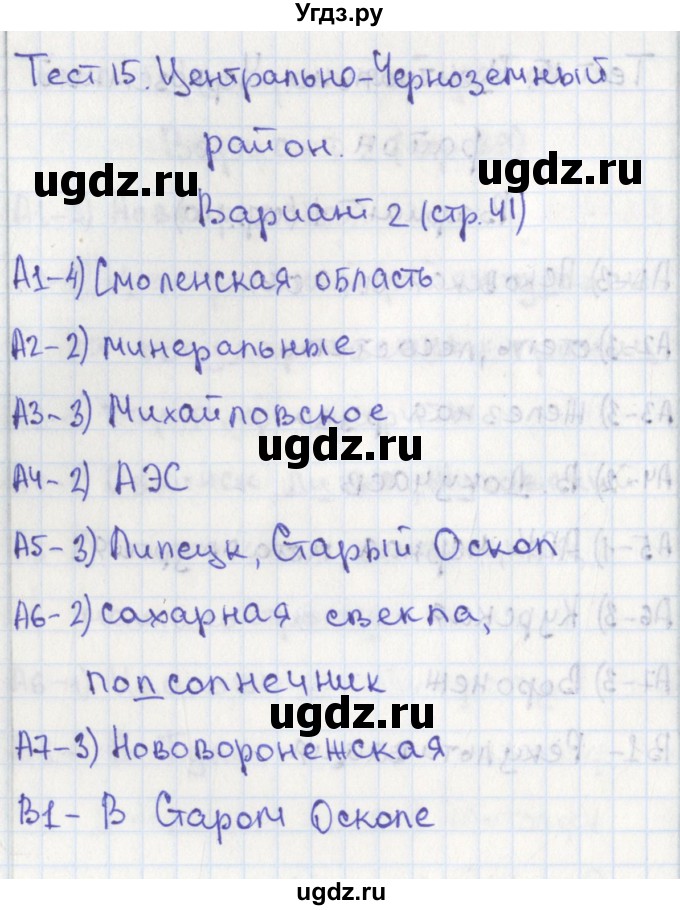 Угдз.ру
Тест 15. Центрально-Черноземный
район.
ugdz.ru
ugdz.ru
Вариант 2 (стр. 41)
А1-4) Смоленская область
А2-2) минеральные
А3-3) Михайловское
ugdz.ru
А4-2) АЭС
А5-3) Липецк, Старый Оскол
А6-2) сахарная свекла,
подсолнечник
ugdz.ru
А7-3) Нововоронежская
В1- В Старом Осколе
ugdz.ru